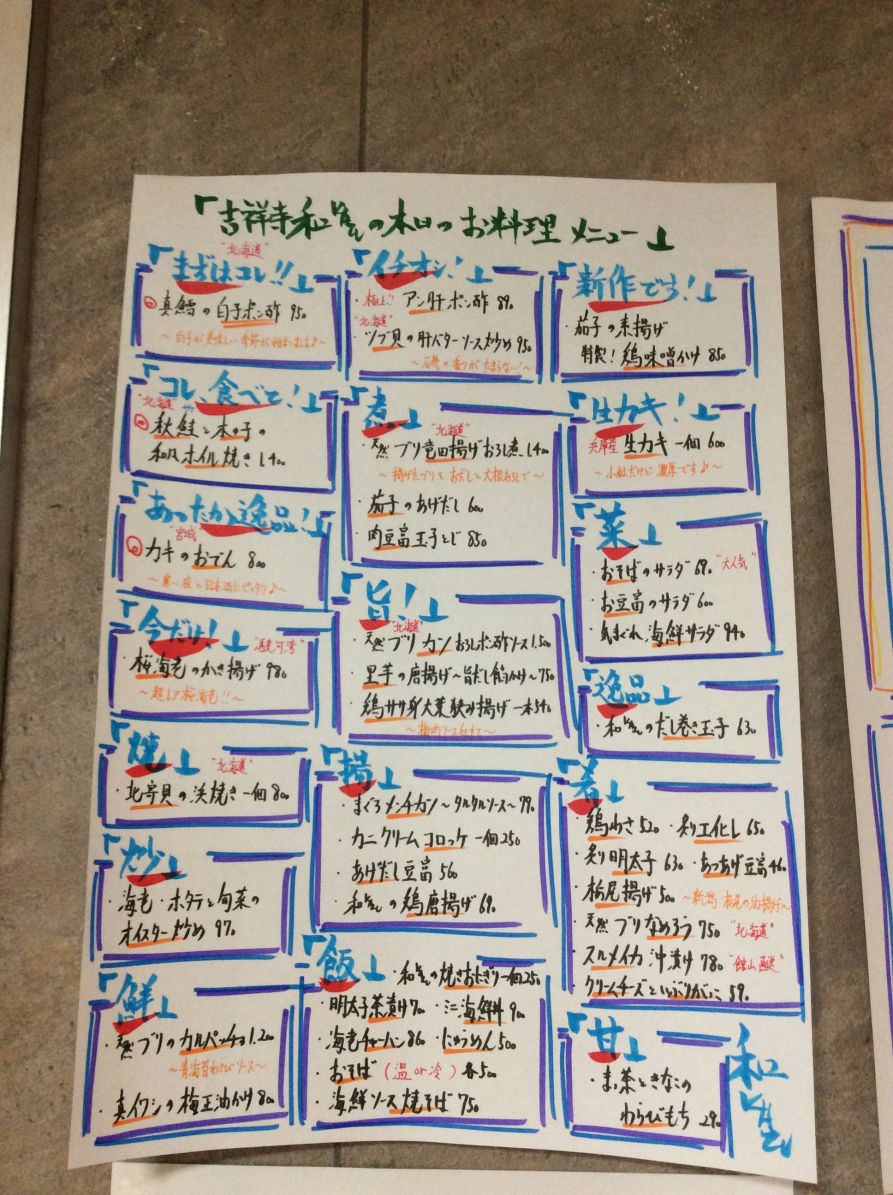 「吉祥寺和の本日のお料理メニュー」
"北海道"
「まずはコレ!!」
真鱈の白子ポン酢 950
〜白子が美味しい季節が始まりました♪〜
「コレ、食べて!」
北海道
秋鮭と木の子の
和風ホイル焼き 1,400
「あったか逸品!」
"宮城"
カキのおでん 800
〜寒い夜と日本酒にピッタリ♪〜
「今だけ!」
"駿河湾"
・桜海老のかき揚げ 980
〜超レア桜海老!!〜
「焼」
"北海道"
・北寄貝の浜焼き一個 800
「炒」
・海老・ホタテと旬菜の
オイスター炒め 970
「鮮」
・天然ブリのカルパッチョ 1,200
〜青海苔わさびソース〜
・真イワシの梅生油かけ 800
「イチオシ!」
・極上!! アン肝ポン酢 890
"北海道"
・ツブ貝の肝バターソース炒め 950
〜石磯の香りがたまらない!〜
「煮」
"北海道"
・天然ブリ竜田揚げおろし煮 1,400
〜揚げたブリとおだしと大根おろしで〜
・茄子のあげだし 600
・肉豆富玉子とじ 850
「旨!」
"北海道"
・天然ブリカツおろしポン酢ソース 1,500
・里芋の唐揚げ〜旨だし餡かけ〜 750
・鶏ササ身大葉挟み揚げ一本 540
〜梅肉ソース和え〜
「揚」
・まぐろメンチカツ〜タルタルソース〜 790
・カニクリームコロッケ一個 250
・あげだし豆富 560
・和の鶏唐揚げ 690
「飯」
・和の焼きおにぎり一個 250
・明太子茶漬け 700 ・ミニ海鮮丼 900
・海老チャーハン 860 ・にゅうめん 500
・おそば (温or冷) 各500
・海鮮ソース焼そば 750
「新作です!」
・茄子の素揚げ
特製!鶏味噌かけ 850
「生カキ!」
兵庫産 生カキ一個 600
〜小粒だけど濃厚です♪〜
「菜」
・おそばのサラダ 690 "大人気"
・お豆富のサラダ 600
・気まぐれ海鮮サラダ 940
「逸品」
・和のだし巻き玉子 630
「肴」
・鶏わさ 520 ・炙りエイヒレ 650
・炙り明太子 630 ・あつあげ豆富 460
・栃尾揚げ 500 〜新潟 栃尾の油揚げ〜
・天然ブリなめろう 750 "北海道"
・スルメイカ沖漬け 780 "館山直送"
・クリームチーズといぶりがっこ 590
「甘」
・ま,茶ときなこの
わらびもち 290
和